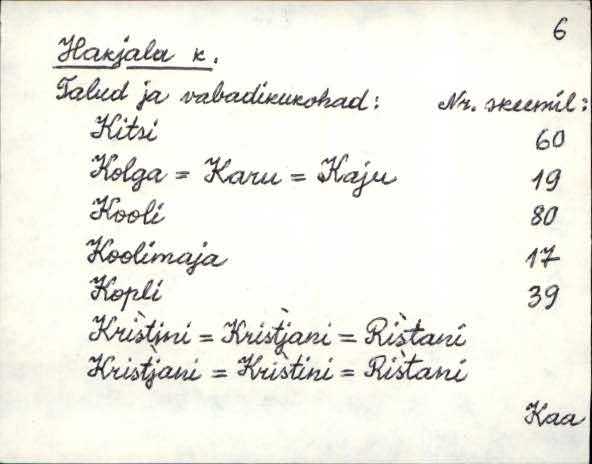 6
Hakjala k.
Talud ja vabadikukohad: Nr. skeemil:
Kitsi 60
Kolga = Karu = Kaju 19
Kooli 80
Koolimaja 17
Kopli 39
Kristjni = Kristjani = Ristani
Kristjani = Kristini = Ristani
Kaa